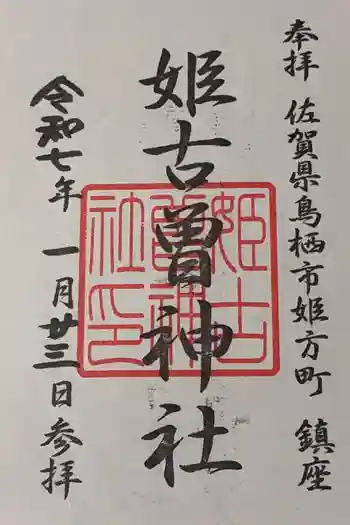 奉拝 佐賀県鳥栖市姫方町 鎮座
姫古曽神社
姫古曽神社印
令和七年 一月廿三日参拝